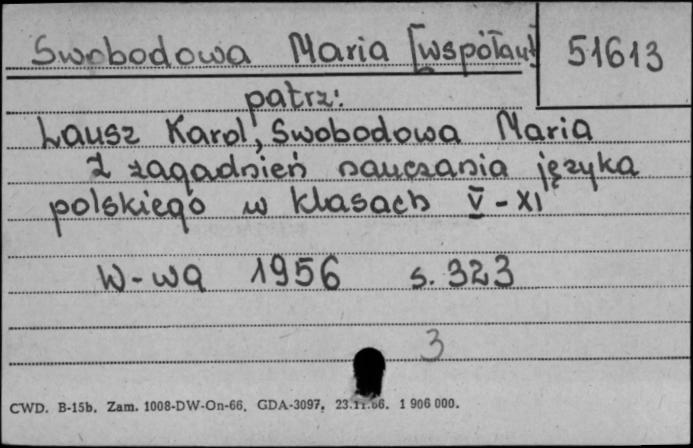 Swobodowa Maria [współaut]
51613
patrz:
Lausz Karol, Swobodowa Maria
Z zagadnień nauczania języka
polskiego w klasach V - XI
W-wa 1956 s. 323
3
CWD. B-15b. Zam. 1008-DW-On-66. GDA-3097. 23.11.66. 1 906 000.